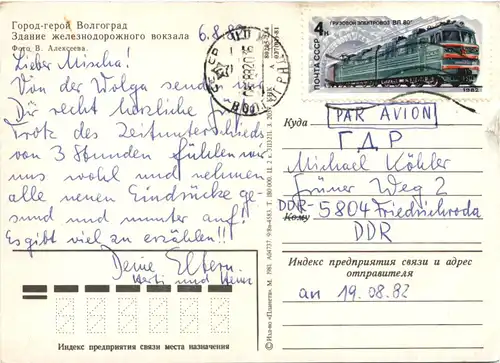 Город-герой Волгоград
Здание железнодорожного вокзала
Фото В. Алексеева.
6.8.82
Lieber Mischa!
Von der Wolga senden wir
Dir recht herzliche
Trotz des Zeitunterschieds
von 3 Stunden fühlen wir
uns wohl und nehmen
alle neuen Eindrücke ge-
sund und munter auf!
Es gibt viel zu erzählen!!
Deine Eltern.
und
Индекс предприятия связи места назначения
© Изд-во «Планета». М. 1981.
4к
ГРУЗОВОЙ ЭЛЕКТРОВОЗ ВЛ 80
ПОЧТА СССР
1982
СССР
Куда
PAR AVION
ГДР
Michael Köhler
Grüner Weg 2
Кому
DDR-5804 Friedrichroda
DDR
Индекс предприятия связи и адрес
отправителя
an 19.08.82